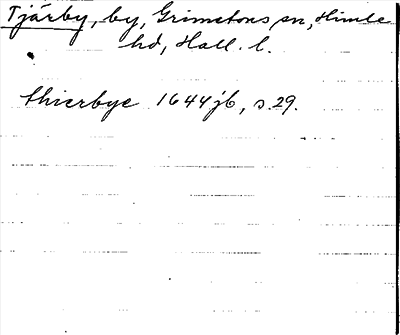 Tjärby, by, Grimetons sn, Himle
hd, Hall. l.
thierbye 1644 jb, s. 29.